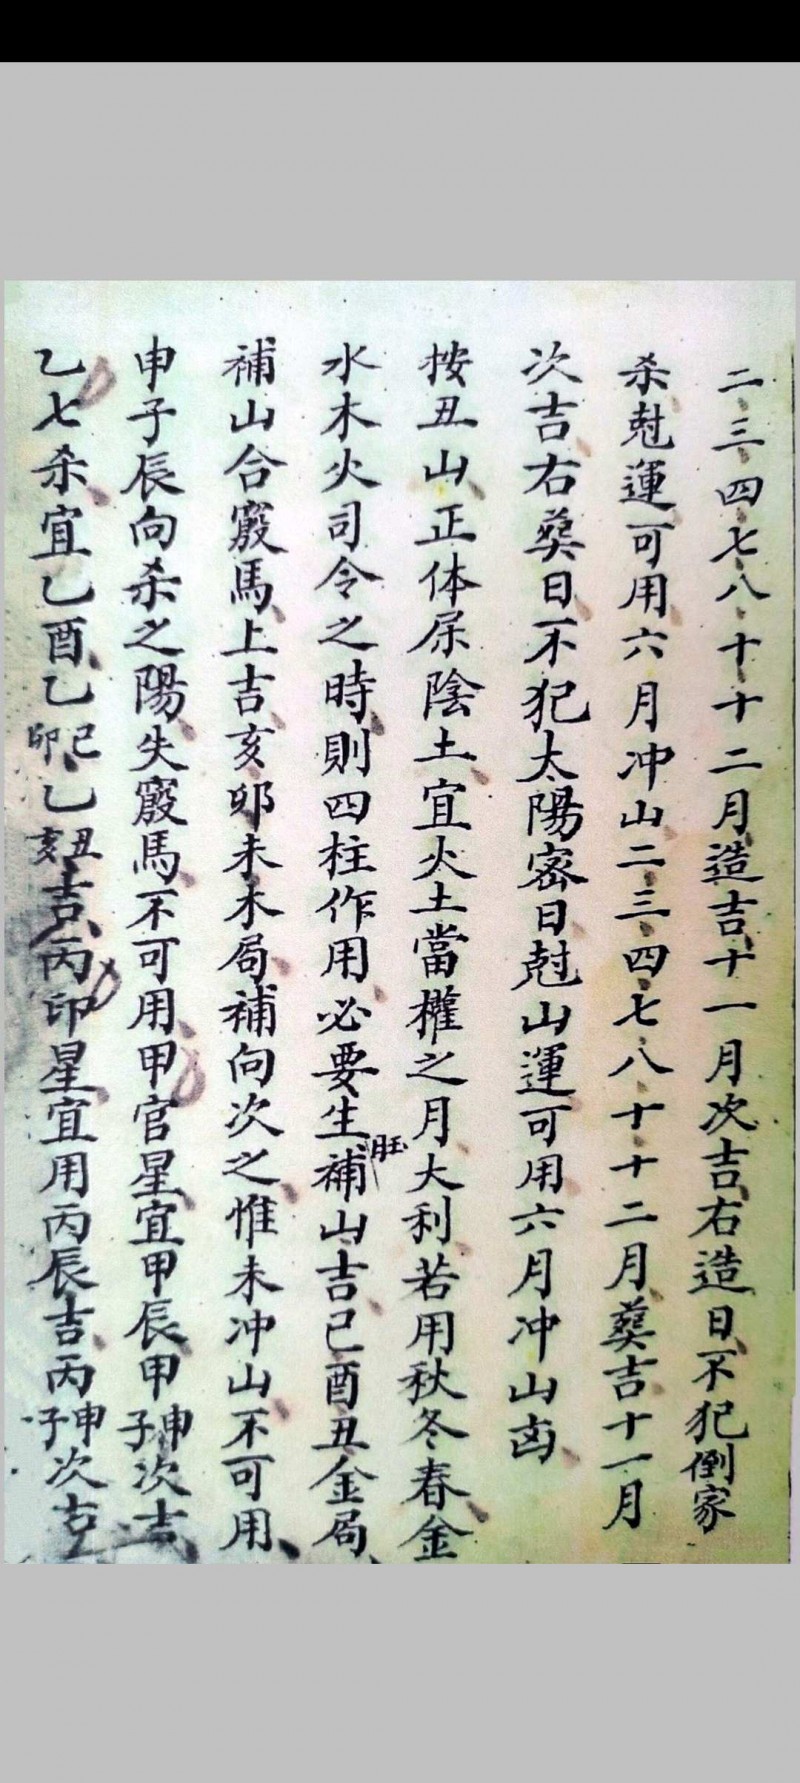 二三四七八十十二月造吉十一月次吉右造日不犯倒家
杀尅運可用六月冲山二三四七八十十二月葬吉十一月
次吉右葬日不犯太陽密日尅山運可用六月冲山卤
按丑山正体屬陰土宜火土當權之月大利若用秋冬春金
水木火司令之時則四柱作用必要生補山吉巳酉丑金局
補山合廄馬上吉亥卯未木局補向次之惟未冲山不可用
申子辰向杀之陽失廄馬不可用甲官星宜甲辰甲申子次吉
乙七杀宜乙酉乙巳卯乙丑亥吉丙印星宜用丙辰吉丙申子次吉